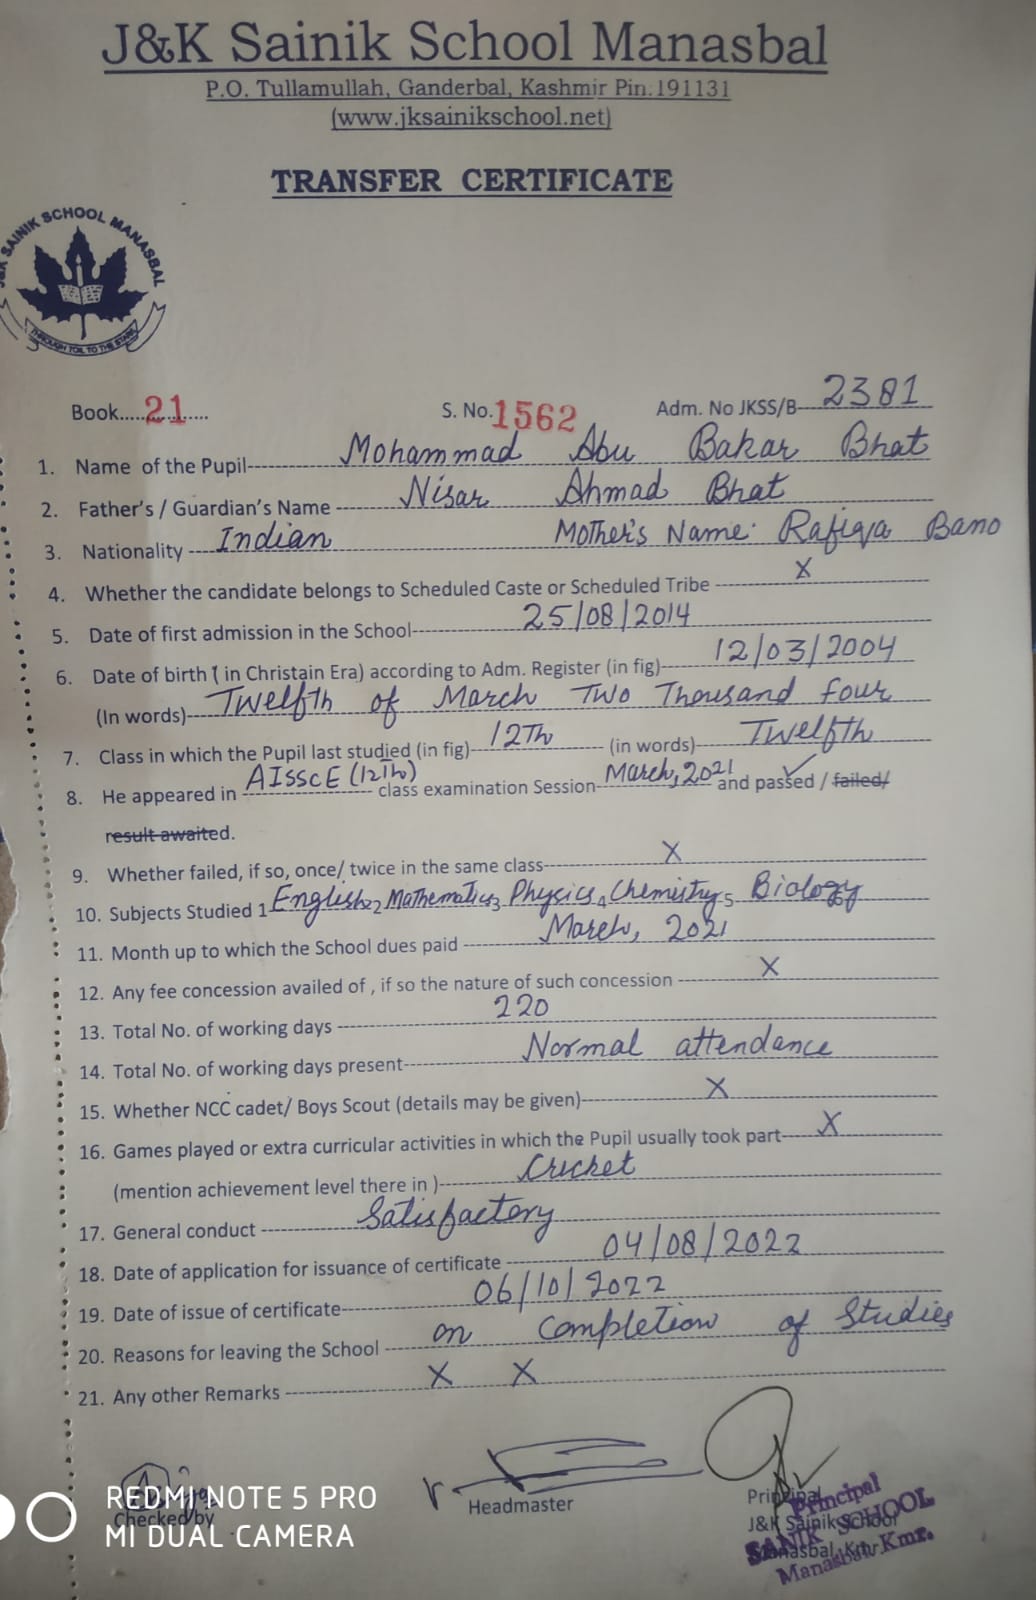 J&K Sainik School Manasbal
P.O. Tullamullah, Ganderbal, Kashmir Pin.191131
(www.jksainikschool.net)
TRANSFER CERTIFICATE
J&K SAINIK SCHOOL MANASBAL
THROUGH TOIL TO THE STARS
Book.....21..... S. No.1562 Adm. No JKSS/B- 2381
1. Name of the Pupil- Mohammad Abu Bakar Bhat
2. Father's / Guardian's Name - Nisar Ahmad Bhat
3. Nationality - Indian Mother's Name: Rafiqa Bano
4. Whether the candidate belongs to Scheduled Caste or Scheduled Tribe - X
5. Date of first admission in the School- 25/08/2014
6. Date of birth ( in Christain Era) according to Adm. Register (in fig)- 12/03/2004
(In words)- Twelfth of March Two Thousand four
7. Class in which the Pupil last studied (in fig)- 12Th (in words)- Twelfth
8. He appeared in AISSCE (12Th) class examination Session- March, 2021 and passed / failed/
result awaited.
9. Whether failed, if so, once/ twice in the same class- X
10. Subjects Studied 1 English 2 Mathematics 3 Physics 4 Chemistry 5 Biology
11. Month up to which the School dues paid - March, 2021
12. Any fee concession availed of , if so the nature of such concession - X
13. Total No. of working days - 220
14. Total No. of working days present- Normal attendance
15. Whether NCC cadet/ Boys Scout (details may be given)- X
16. Games played or extra curricular activities in which the Pupil usually took part- X
(mention achievement level there in )- Cricket
17. General conduct - Satisfactory
18. Date of application for issuance of certificate - 04/08/2022
19. Date of issue of certificate- 06/10/2022
20. Reasons for leaving the School - on Completion of Studies
21. Any other Remarks - X X
Checked by Headmaster Principal
J&K Sainik School
Manasbal, Kmr.
Principal
SANIK SCHOOL
Manasbal Kmr.
REDMI NOTE 5 PRO
MI DUAL CAMERA